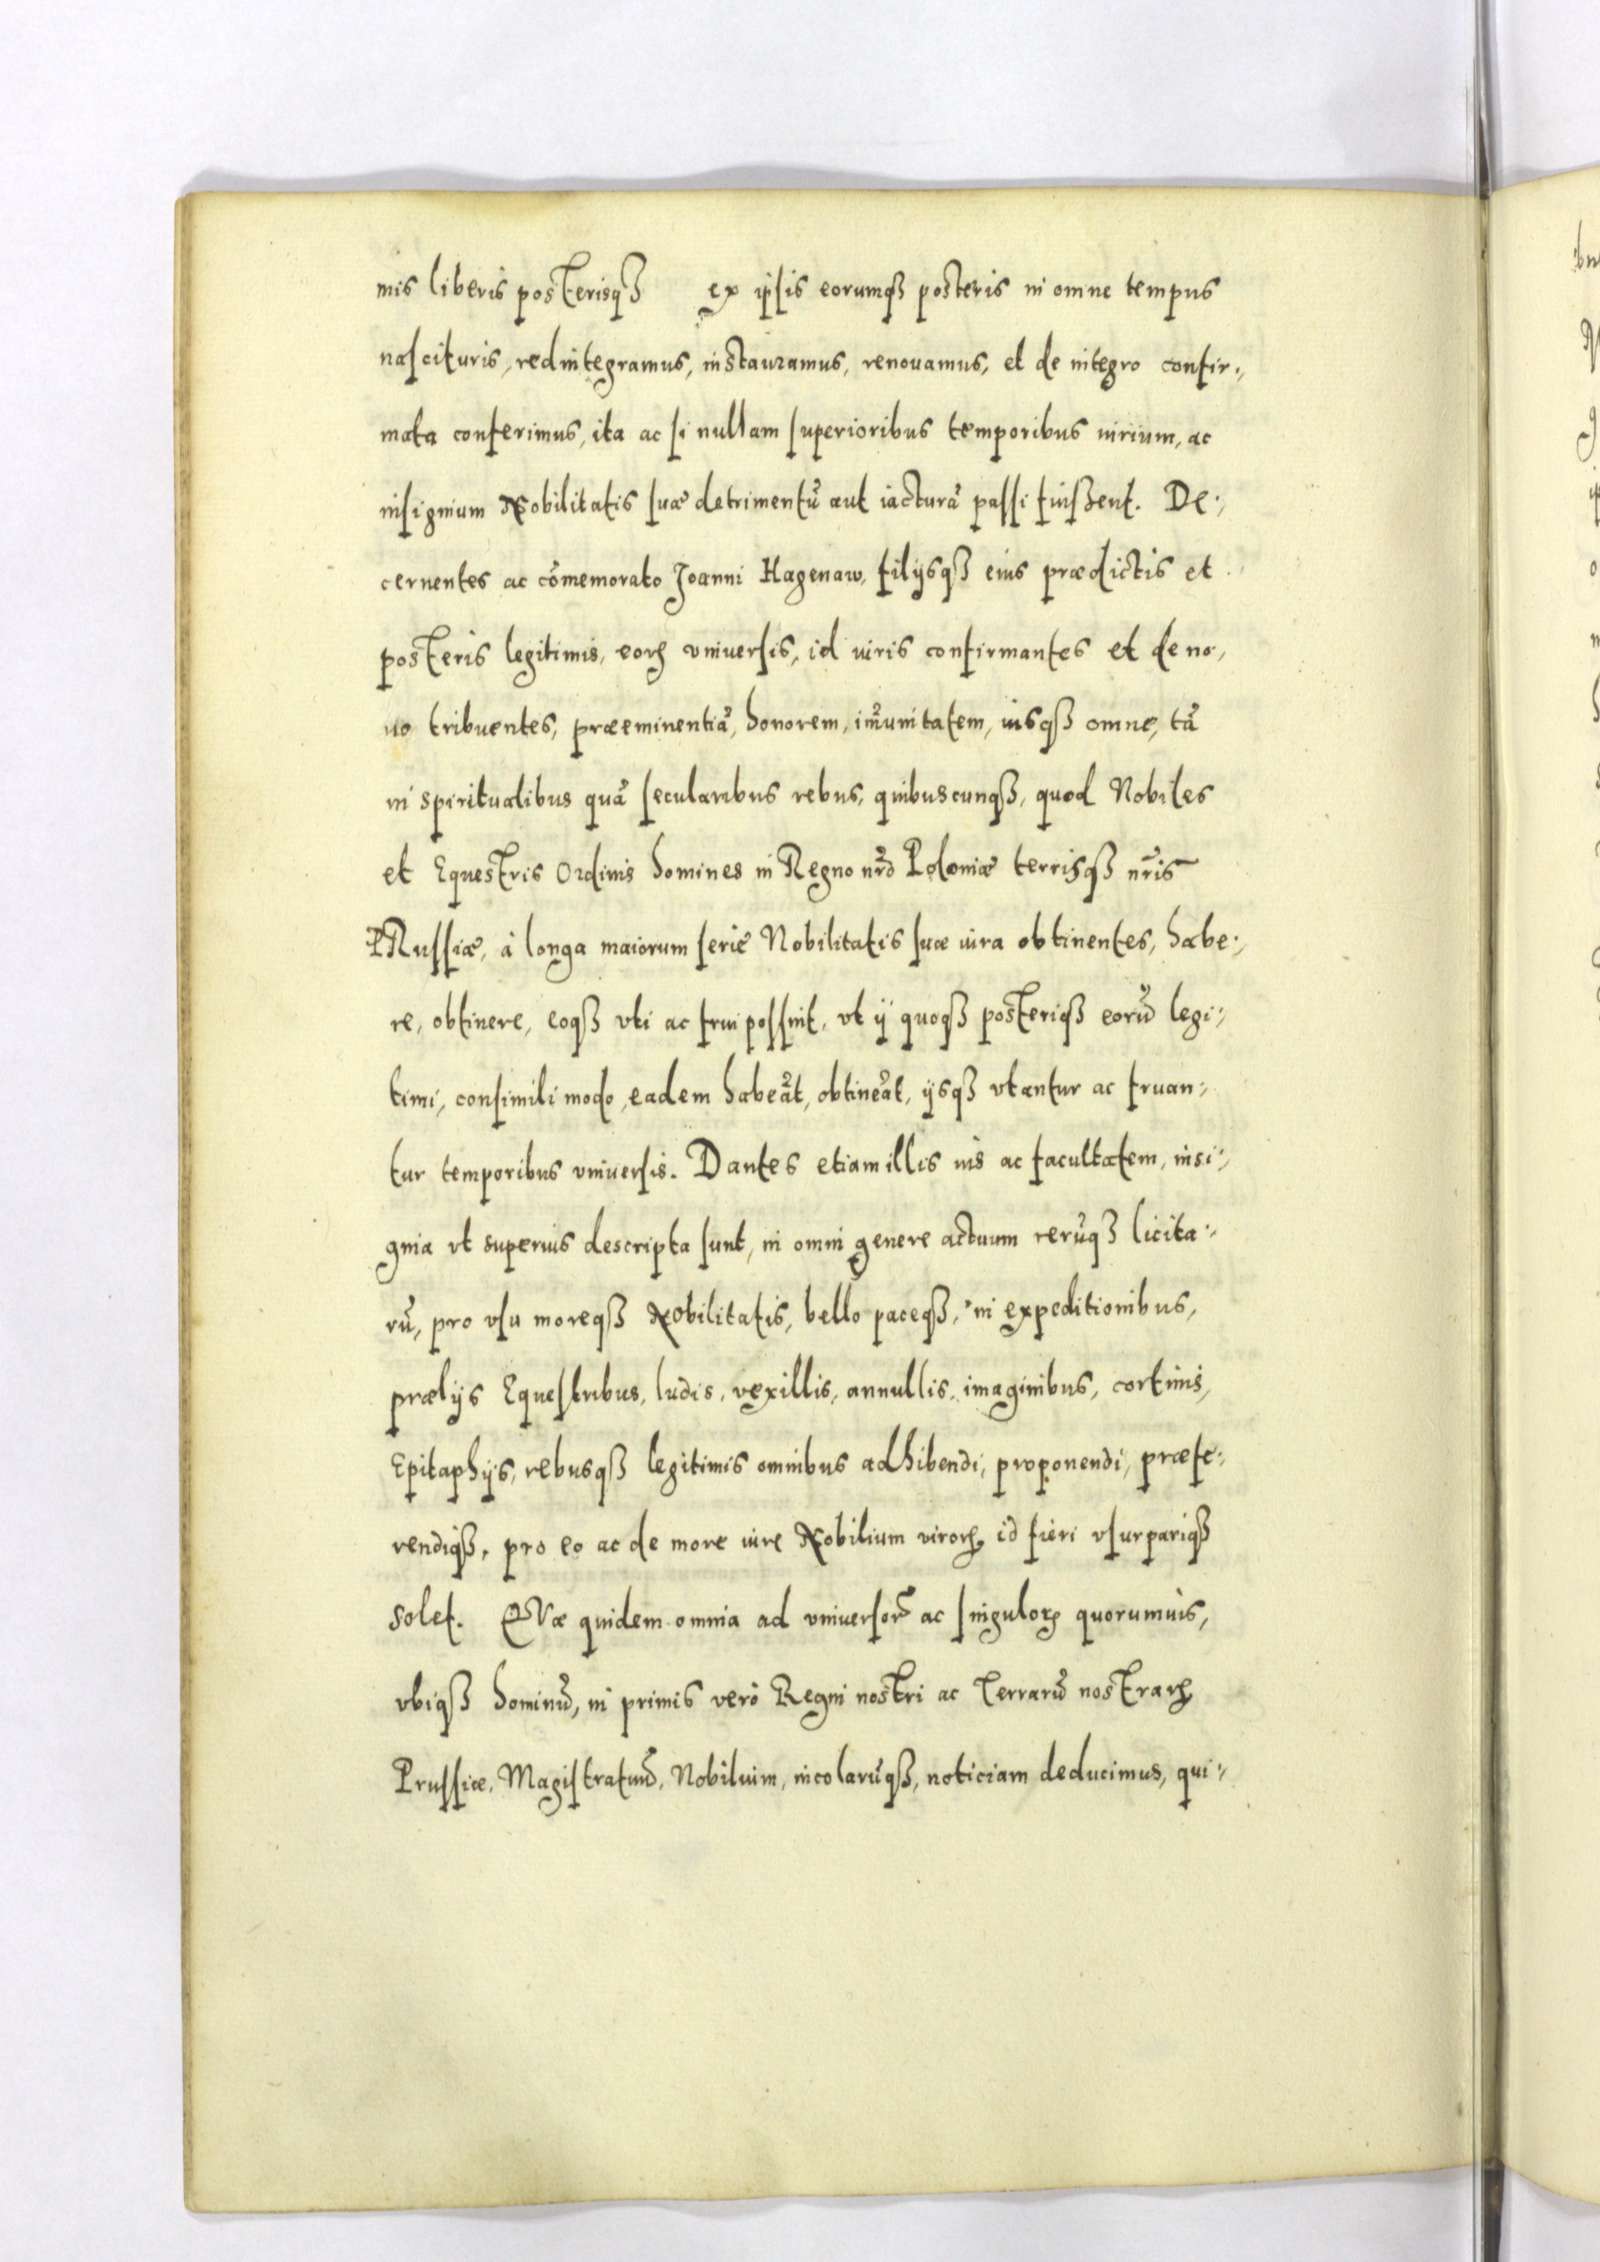 mis liberis posterisqꝫ ex ipsis eorumqꝫ posteris in omne tempus
nascituris, redintegramus, instauramus, renouamus, et de integro confir-,
mata conferimus, ita ac si nullam superioribus temporibus iurium, ac
insignium Nobilitatis suæ detrimentũ aut iacturã passi fuissent. De-,
cernentes ac cõmemorato Joanni Hagenaw, filijsqꝫ eius prædictis et
posteris legitimis, eorꝝ vniuersis, id iuris confirmantes et de no,
uo tribuentes, præeminentiã, honorem, im̃unitatem, iusqꝫ omne, tã
in spiritualibus quã secularibus rebus, quibuscunqꝫ, quod Nobiles
et Equestris Ordinis homines in Regno nr̃o Poloniæ terrisqꝫ nr̃is
PRussiæ, à longa maiorum serie Nobilitatis suæ iura obtinentes, habe-,
re, obtinere, eoqꝫ vti ac frui possint, vt ij quoqꝫ posteriqꝫ eorũ legi-,
timi, consimili modo, eadem habeãt, obtineãt, ijsqꝫ vtantur ac fruan-,
tur temporibus vniuersis. Dantes etiam illis ius ac facultatem, insi-,
gnia vt superius descripta sunt, in omni genere actuum rerũqꝫ licita-,
rũ, pro vsu moreqꝫ Nobilitatis, bello paceqꝫ, in expeditionibus,
prælijs Equestribus, ludis, vexillis, annullis, imaginibus, cortinis,
Epitaphijs, rebusqꝫ legitimis omnibus adhibendi, proponendi, præfe-,
rendiqꝫ, pro eo ac de more iure Nobilium virorꝝ id fieri vsurpariqꝫ
solet. QVæ quidem omnia ad vniuersorꝝ ac singulorꝝ quorumuis,
vbiqꝫ hominũ, in primis verò Regni nostri ac Terrarũ nostrarꝝ
Prussiæ, Magistratuũ, Nobilium, incolarũqꝫ, noticiam deducimus, qui-,